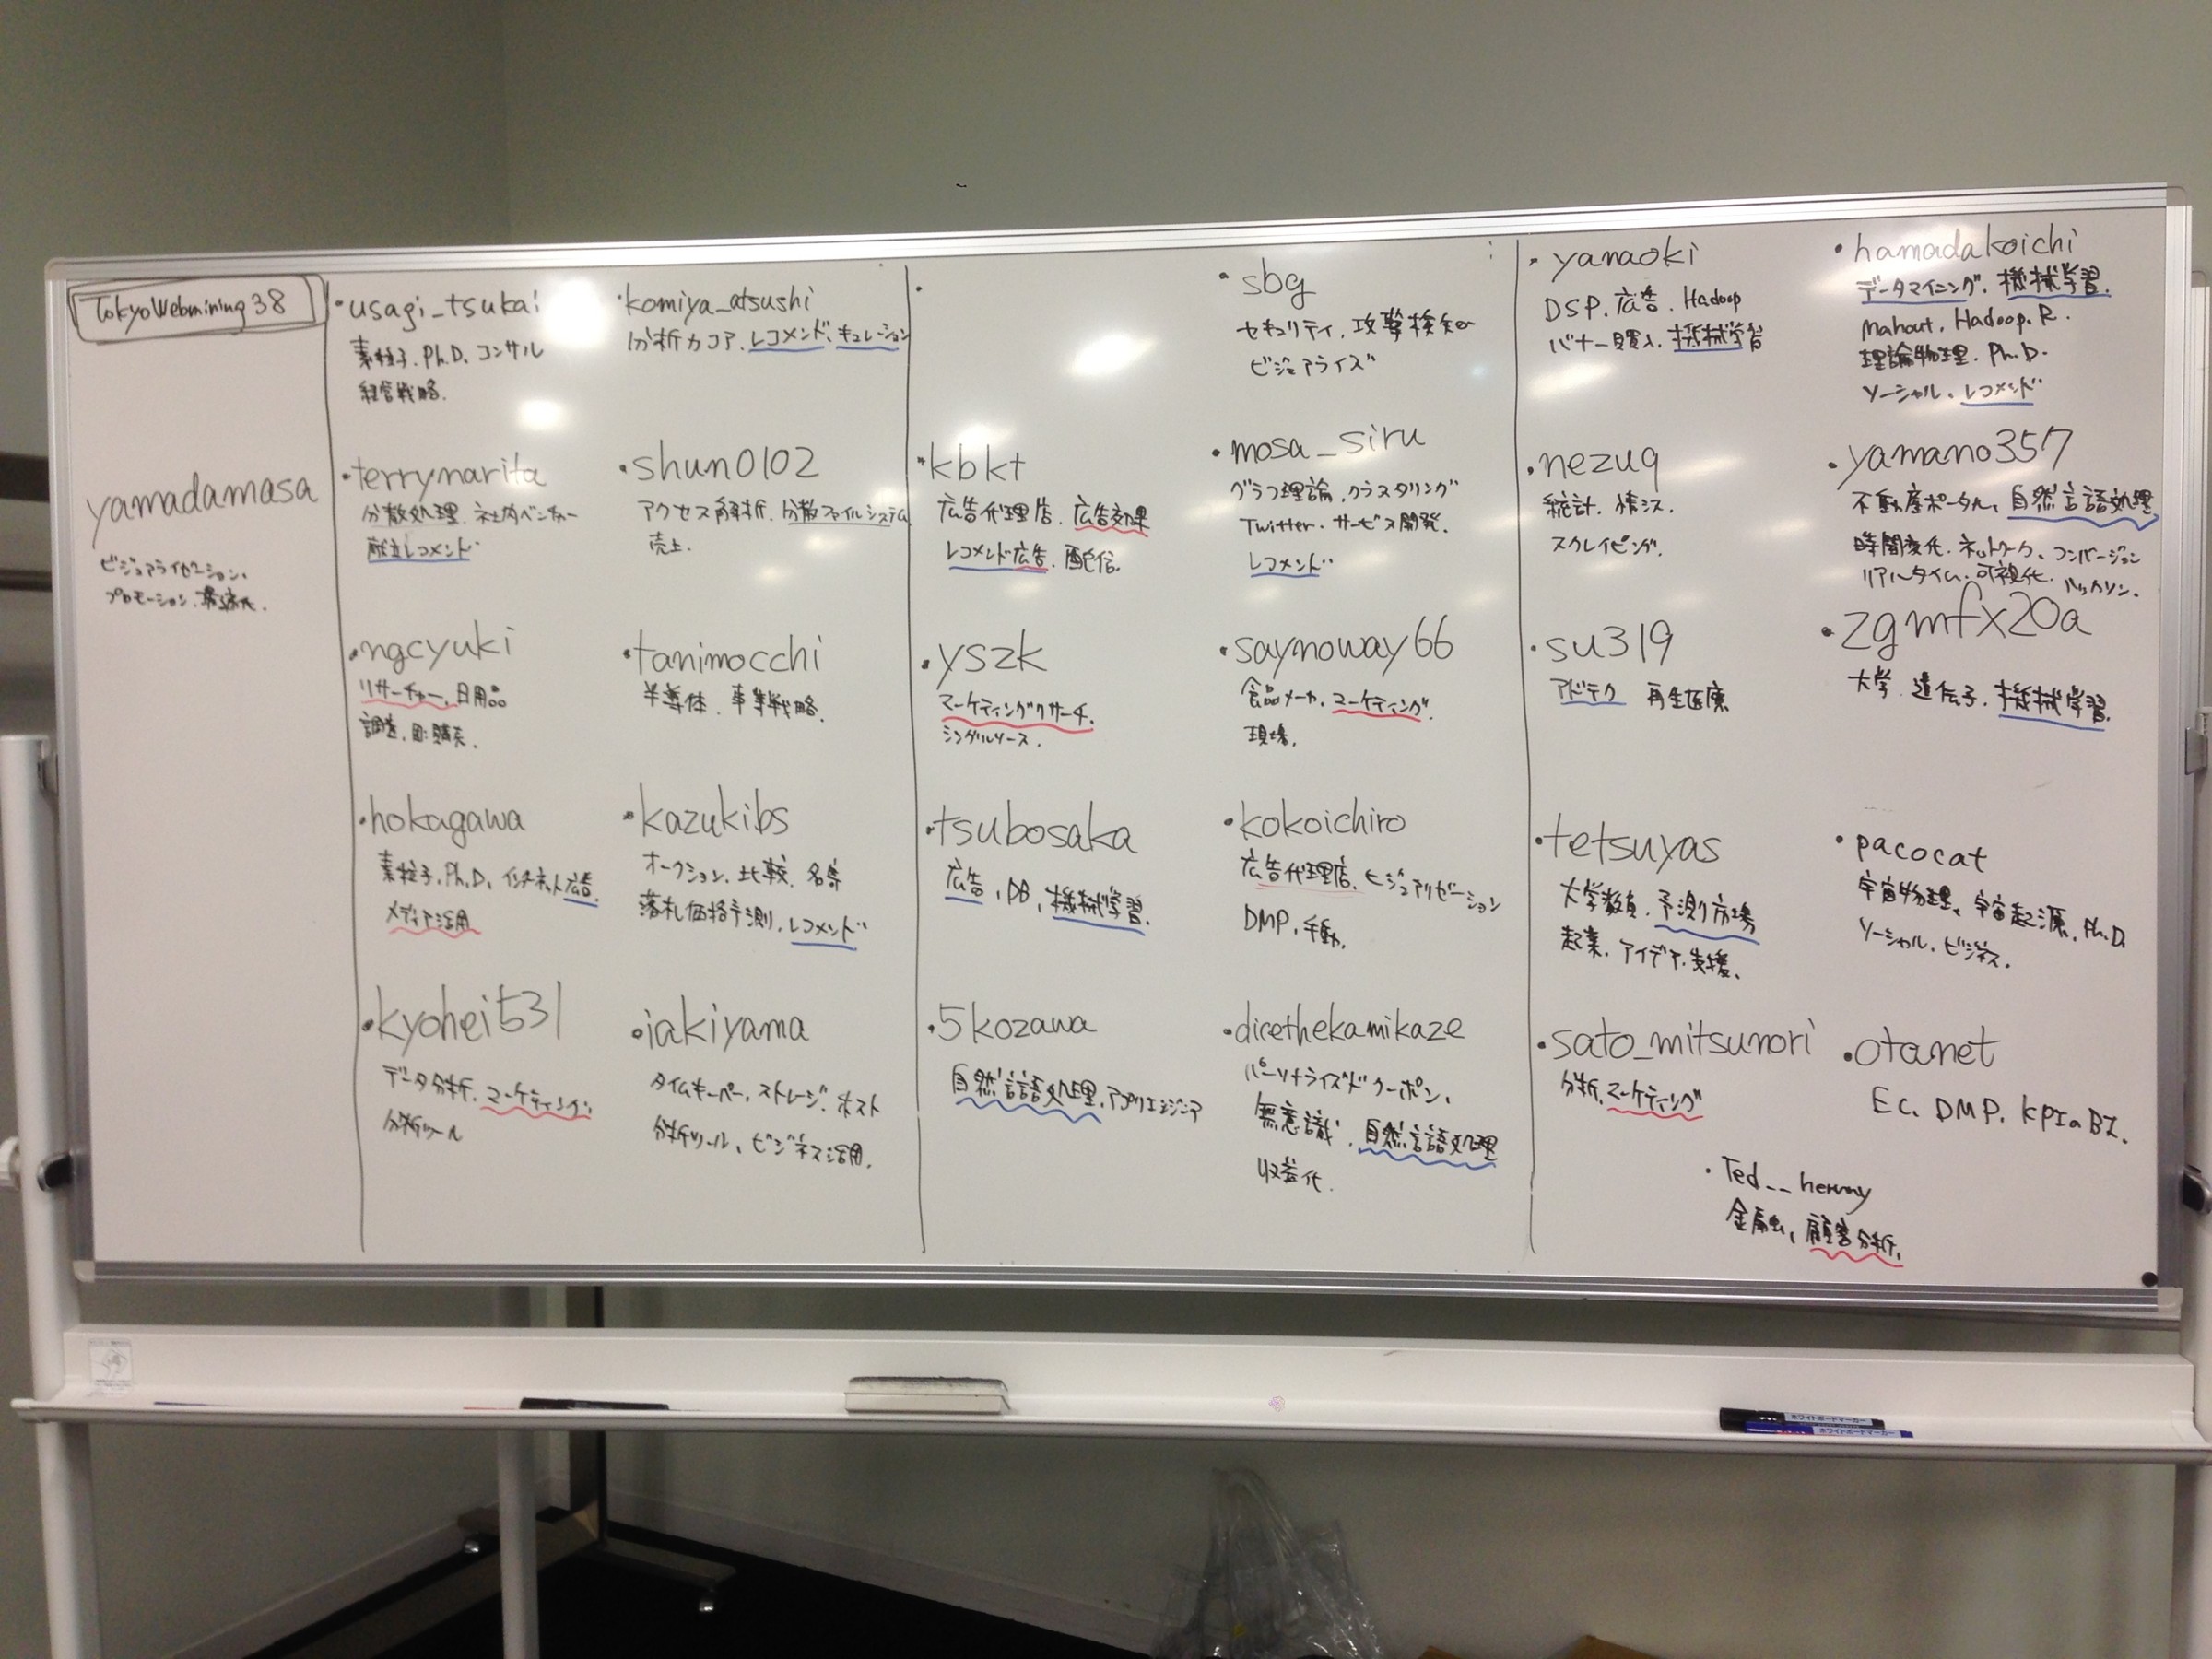 TokyoWebmining38
yamadamasa
ビジュアライゼーション、
プロモーション、最適化.
・usagi_tsukai
素粒子. Ph.D. コンサル
経営戦略.
・terrynarita
分散処理. 社内ベンチャー
献立レコメンド
・ngcyuki
リサーチャー. 日用品
調査.
・hokagawa
素粒子. Ph.D. インターネット広告.
メディア活用
・kyohei531
データ分析. マーケティング.
分析ツール
・komiya_atsushi
分析力コア. レコメンド、キュレーション
・shun0102
アクセス解析. 分散ファイルシステム
売上.
・tanimocchi
半導体. 事業戦略.
・kazukibs
オークション. 比較. 名寄
落札価格予測. レコメンド
・iakiyama
タイムキーパー. ストレージ. ホスト
分析ツール、ビジネス活用.
・
・kbkt
広告代理店. 広告効果
レコメンド広告. 配信.
・yszk
マーケティングリサーチ.
シングルソース.
・tsubosaka
広告, DB, 機械学習.
・5kozawa
自然言語処理. アプリエンジニア
・sbg
セキュリティ. 攻撃検知の
ビジュアライズ
・mosa_siru
グラフ理論. クラスタリング
Twitter. サービス開発.
レコメンド
・saynoway66
食品メーカ. マーケティング.
現場.
・kokoichiro
広告代理店. ビジュアリゼーション
DMP. 手動.
・dicethekamikaze
パーソナライズドクーポン、
無意識. 自然言語処理
収益化.
・yanaoki
DSP. 広告. Hadoop
バナー買入. 機械学習
・nezuq
統計. 情シス.
スクレイピング.
・su319
アドテク 再生医療
・tetsuyas
大学教員. 予測市場
起業. アイデア. 支援.
・sato_mitsunori
分析. マーケティング
・hamadakoichi
データマイニング. 機械学習.
Mahout. Hadoop. R.
理論物理. Ph.D.
ソーシャル. レコメンド
・yamano357
不動産ポータル. 自然言語処理
時間変化. ネットワーク. コンバージョン
リアルタイム. 可視化. ハッカソン.
・zgmfx20a
大学. 遺伝子. 機械学習.
・pacocat
宇宙物理. 宇宙起源. Ph.D.
ソーシャル. ビジネス.
・otanet
EC. DMP. KPIの
・Ted__
金融. 顧客分析.
ホワイトボードマーカー
ホワイトボードマーカー